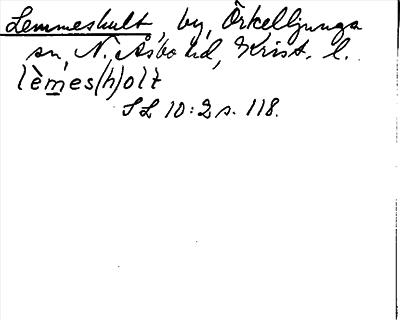 Lemmeshult, by, Örkelljunga
sn, N. Åsbo hd, Krist. l.
lèmes(h)olt
SL 10:2 s. 118.